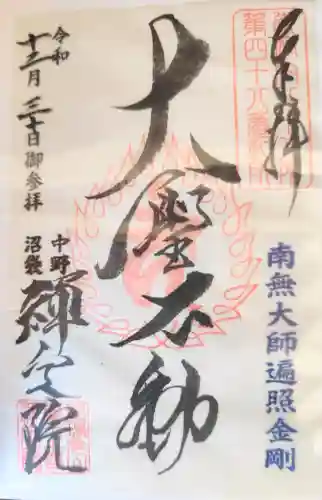 奉拝
第四十八番
南無大師遍照金剛
大聖不動
令和
十二月三十日御参拝
中野
沼袋
禅定院